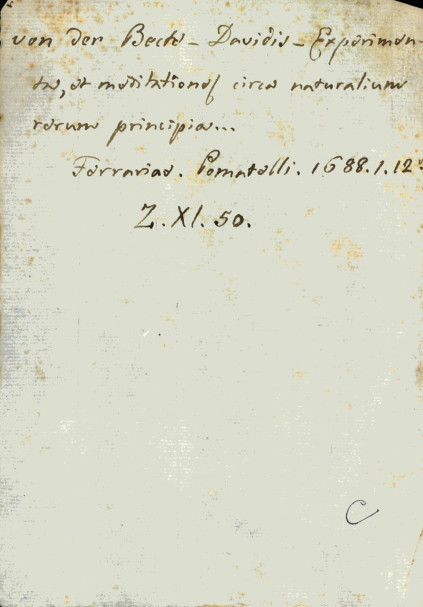 von der Becke - Davidis - Experimen-
ta, et meditationes circa naturalium
rerum principia...
Ferrariae. Pomatelli. 1688. 1. 12°
Z. XI. 50.
C